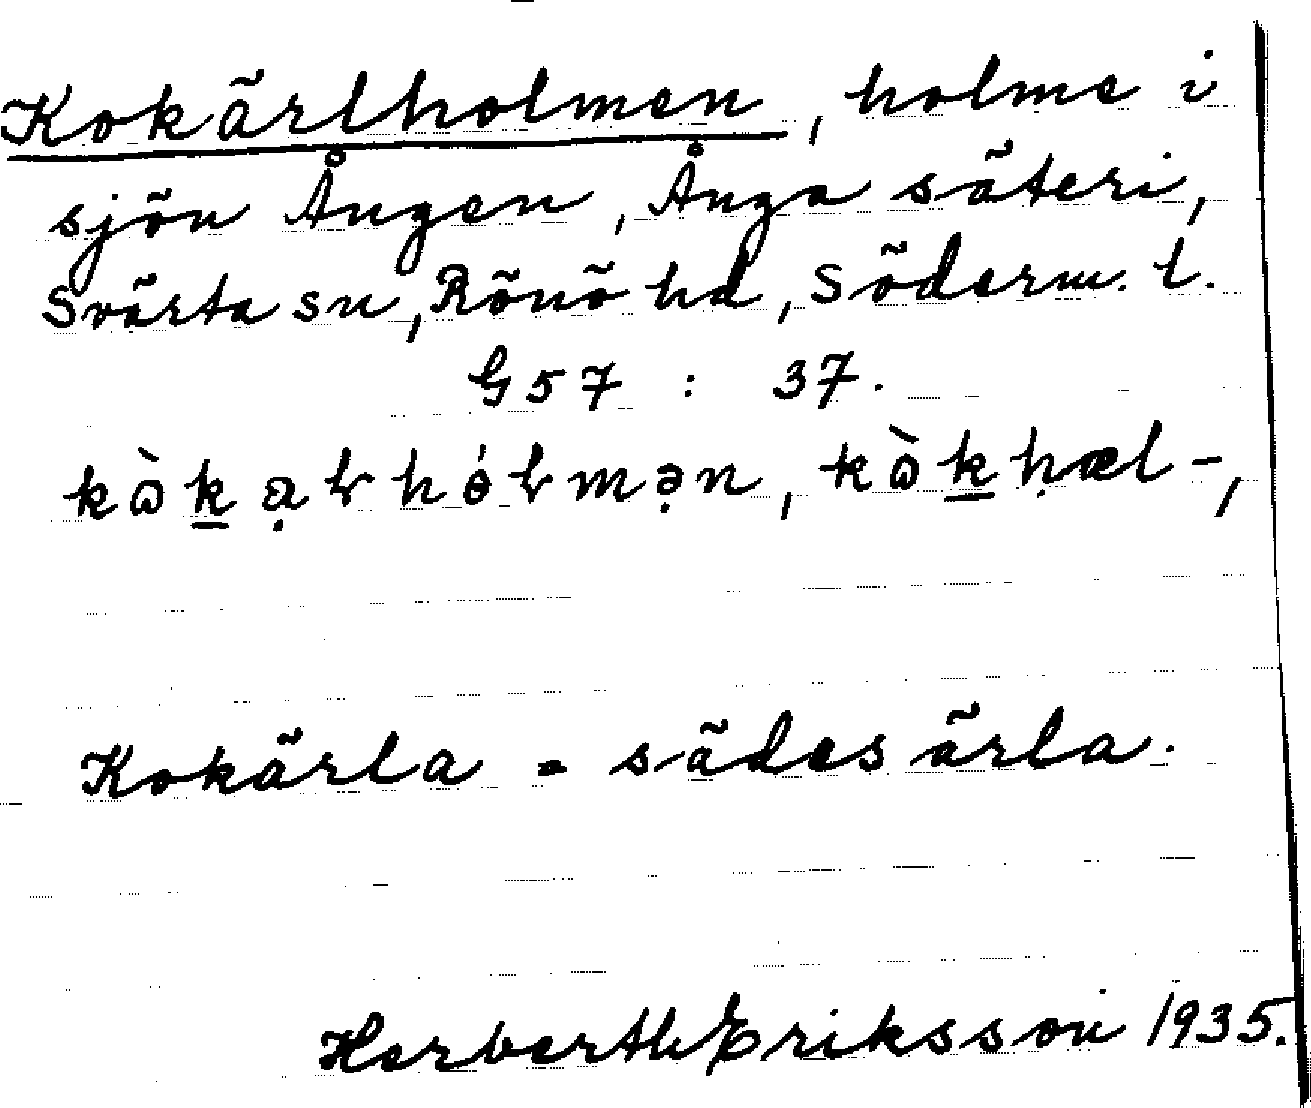 Kokärlholmen, holme i
sjön Ången, Ånga säteri,
Svärta sn, Rönö hd, Söderm. l.
G57 : 37.
Kokärla = sädesärla.
Herberth Eriksson 1935.